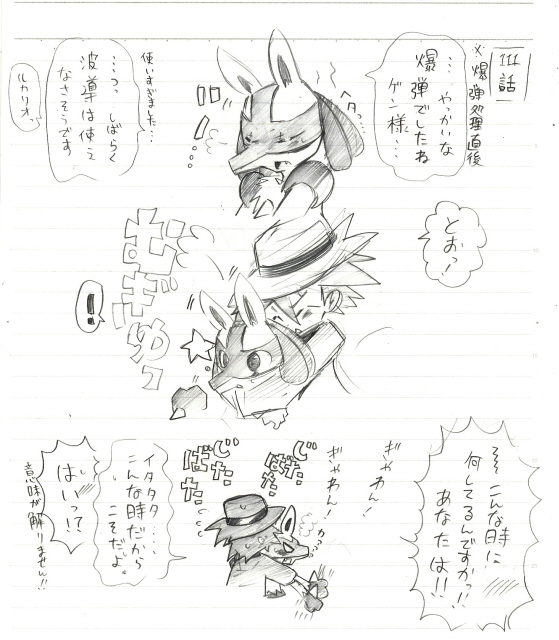 111話
※爆弾処理直後
…やっかいな
爆弾でしたね
ゲン様…
ヘタっ…
使いすぎました…
…っつ しばらく
波導は使え
なさそうです
ルカリオ。
とおっ!
むぎゅっ
!!
こんな時に
何してるんですかっ!!
あなたは!!
ぎゃわん!
ぎゃわん!
じたばた
じたばた
イタタタ…
こんな時だから
こそだよ。
はいっ!?
意味が解りません!!